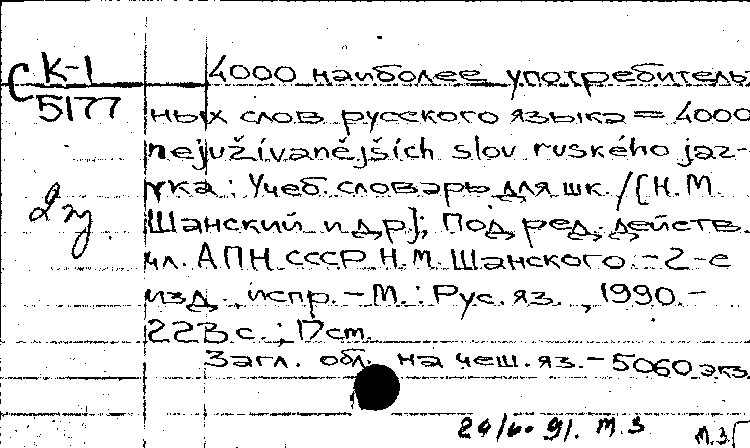 С К-1
5177
4000 наиболее употребитель-
ных слов русского языка = 4000
nejužívanějších slov ruského jaz-
yka : Учеб. словарь для шк. / [Н.М.
Шанский и др]; Под ред. действ.
чл. АПН СССР Н.М. Шанского. - 2-е
изд., испр. - М. : Рус. яз., 1990. -
223 с. ; 17cm.
Загл. обл. на чеш. яз. - 5060 экз.
91. м.з
м.з